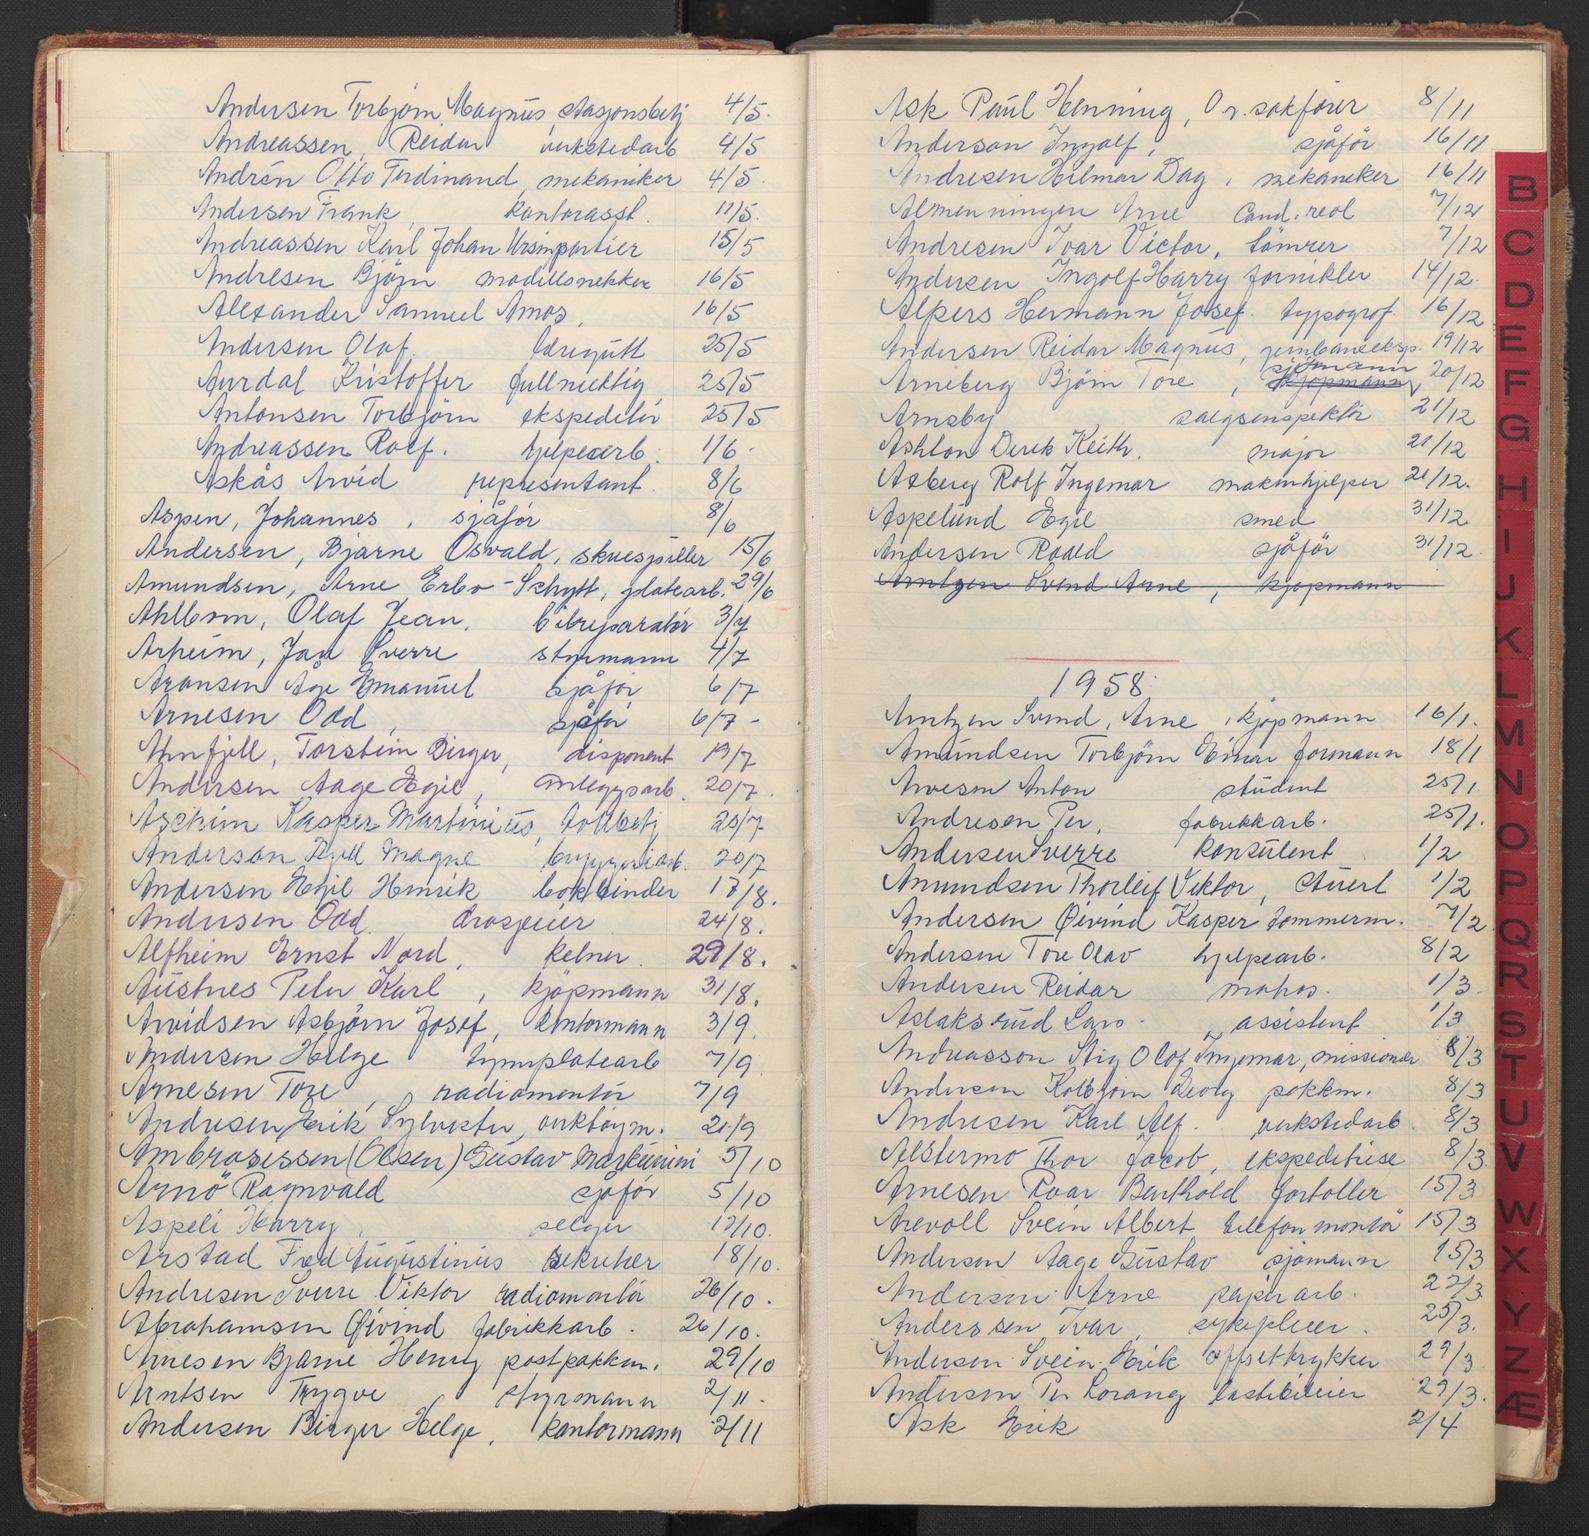 Andersen Torbjørn Magnus, stasjonsbetj 4/5.
Andreassen, Reidar verkstedarb 4/5
Andrén Otto Ferdinand, mekaniker 4/5.
Andersen Frank, kontorasst. 11/5.
Andreassen Karl Johan Ursin portier 15/5
Andresen Bjørn modellsnekker 16/5
Alexander Samuel Amos, 16/5
Andersen Olaf. 25/5
Aurdal Kristoffer fullmektig 25/5
Antonsen Torbjörn ekspeditör 25/5
Andreassen Rolf. hjelpearb. 1/6.
Askås Arvid representant. 8/6
Aspen, Johannes, sjåför 8/6
Andersen, Bjarne Osvald, skuespiller 15/6
Amundsen, Arne Erbo-Schytt, platearb. 29/6
Ahlbom, Olaf Jean, bilreparatör 3/7
Arheim, Jan Sverre styrmann 4/7
Aronsen Åge Emanuel sjåför 6/7
Arnesen Odd, sjåför 6/7 -
Ahnfjell, Torstein Birger, disponent 19/7
Andersen Aage Egil, anleggsarb. 20/7.
Aschim Kasper Martinius, tollbetj 20/7
Anderson Kjell Magne bryggeriarb. 20/7
Andersen Egil Henrik bokbinder 17/8.
Andersen Odd. drosjeeier 24/8.
Alfheim Ernst Nord, kelner. 29/8.
Austnes Peter Karl, kjöpmann 31/8.
Arvidsen Asbjörn Josef, kontormann 3/9.
Andersen Helge tynnplatearb 7/9
Arnesen Tore, radiomontör 7/9
Andresen Erik Sylvester, verktöym. 21/9
Ambrosessen (Olsen) Gustav 5/10
Arnö Ragnvald sjåför 5/10
Aspeli Harry, selger 17/10.
Arstad Fred Augustinus sekretær 18/10.
Andresen Sverre Viktor radiomontör 26/10.
Abrahamsen Øivind fabrikkarb. 26/10.
Arnesen Bjarne Henry postpakkm. 29/10
Arntsen Trygve styrmann 2/11.
Andersen Birger Helge, kontormann 2/11
Ask Paul Henning, O.r.sakförer 8/11
Anderson Ingolf, sjåför 16/11
Andresen Hilmar Dag, mekaneker 16/11
Almenningen Arne Cand. real 7/12
Andresen Ivar Victor, tömrer 7/12
Andersen Ingolf Harry fornikler 14/12.
Alpers Hermann Josef. typograf 16/12
Andersen Reidar Magnus, jernbaneeksp. 19/12
sjömann
Arneberg Bjørn Tore, kjøpmann 20/12
Arnsby salgsenspektör 21/12
Ashton Derek Keith. major 21/12
Asberg Rolf Ingemar maskinhjelper 21/12.
Aspelund Egil smed 31/12
Andersen Roald sjåför 31/12.
Arntzen Svend Arne, kjøpmann
1958.
Arntzen Svend, Arne, kjøpmann 16/1.
Amundsen Torbjörn Einar formann 18/1
Arvesen Anton student 25/1.
Andresen Per, fabrikkarb. 25/1.
Andersen Sverre konsulent. 1/2
Amundsen Thorleif Viktor, stuert 1/2
Andersen Øivind Kasper tommerm. 7/2
Andersen Tore Olav hjelpearb. 8/2
Andersen Reidar 1/3
Aslaksrud Lars. assistent 1/3
Andreasson Stig Olof Ingemar, missionær 8/3
Andersen Kolbjørn Georg pakkm. 8/3
Andresen Karl Alf. verkstedarb. 8/3
Alstermo Thor Jacob, ekspeditrise 8/3
Arnesen Roar Berthold fortoller 15/3
Arevoll Svein Albert telefonmontör 15/3
Andersen Aage Gustav sjömann 15/3
Andersen Arne papirarb. 22/3
Anderssen Ivar, sykepleier. 25/3.
Andersen Svein Erik offsettrykker 29/3
Andersen Per Lorang lastebileier 29/3.
Ask Erik 2/4
B
C
D
E
F
G
H
I
J
K
L
M
N
O
P
Q
R
S
T
U
V
W
X
Y
Z
Æ